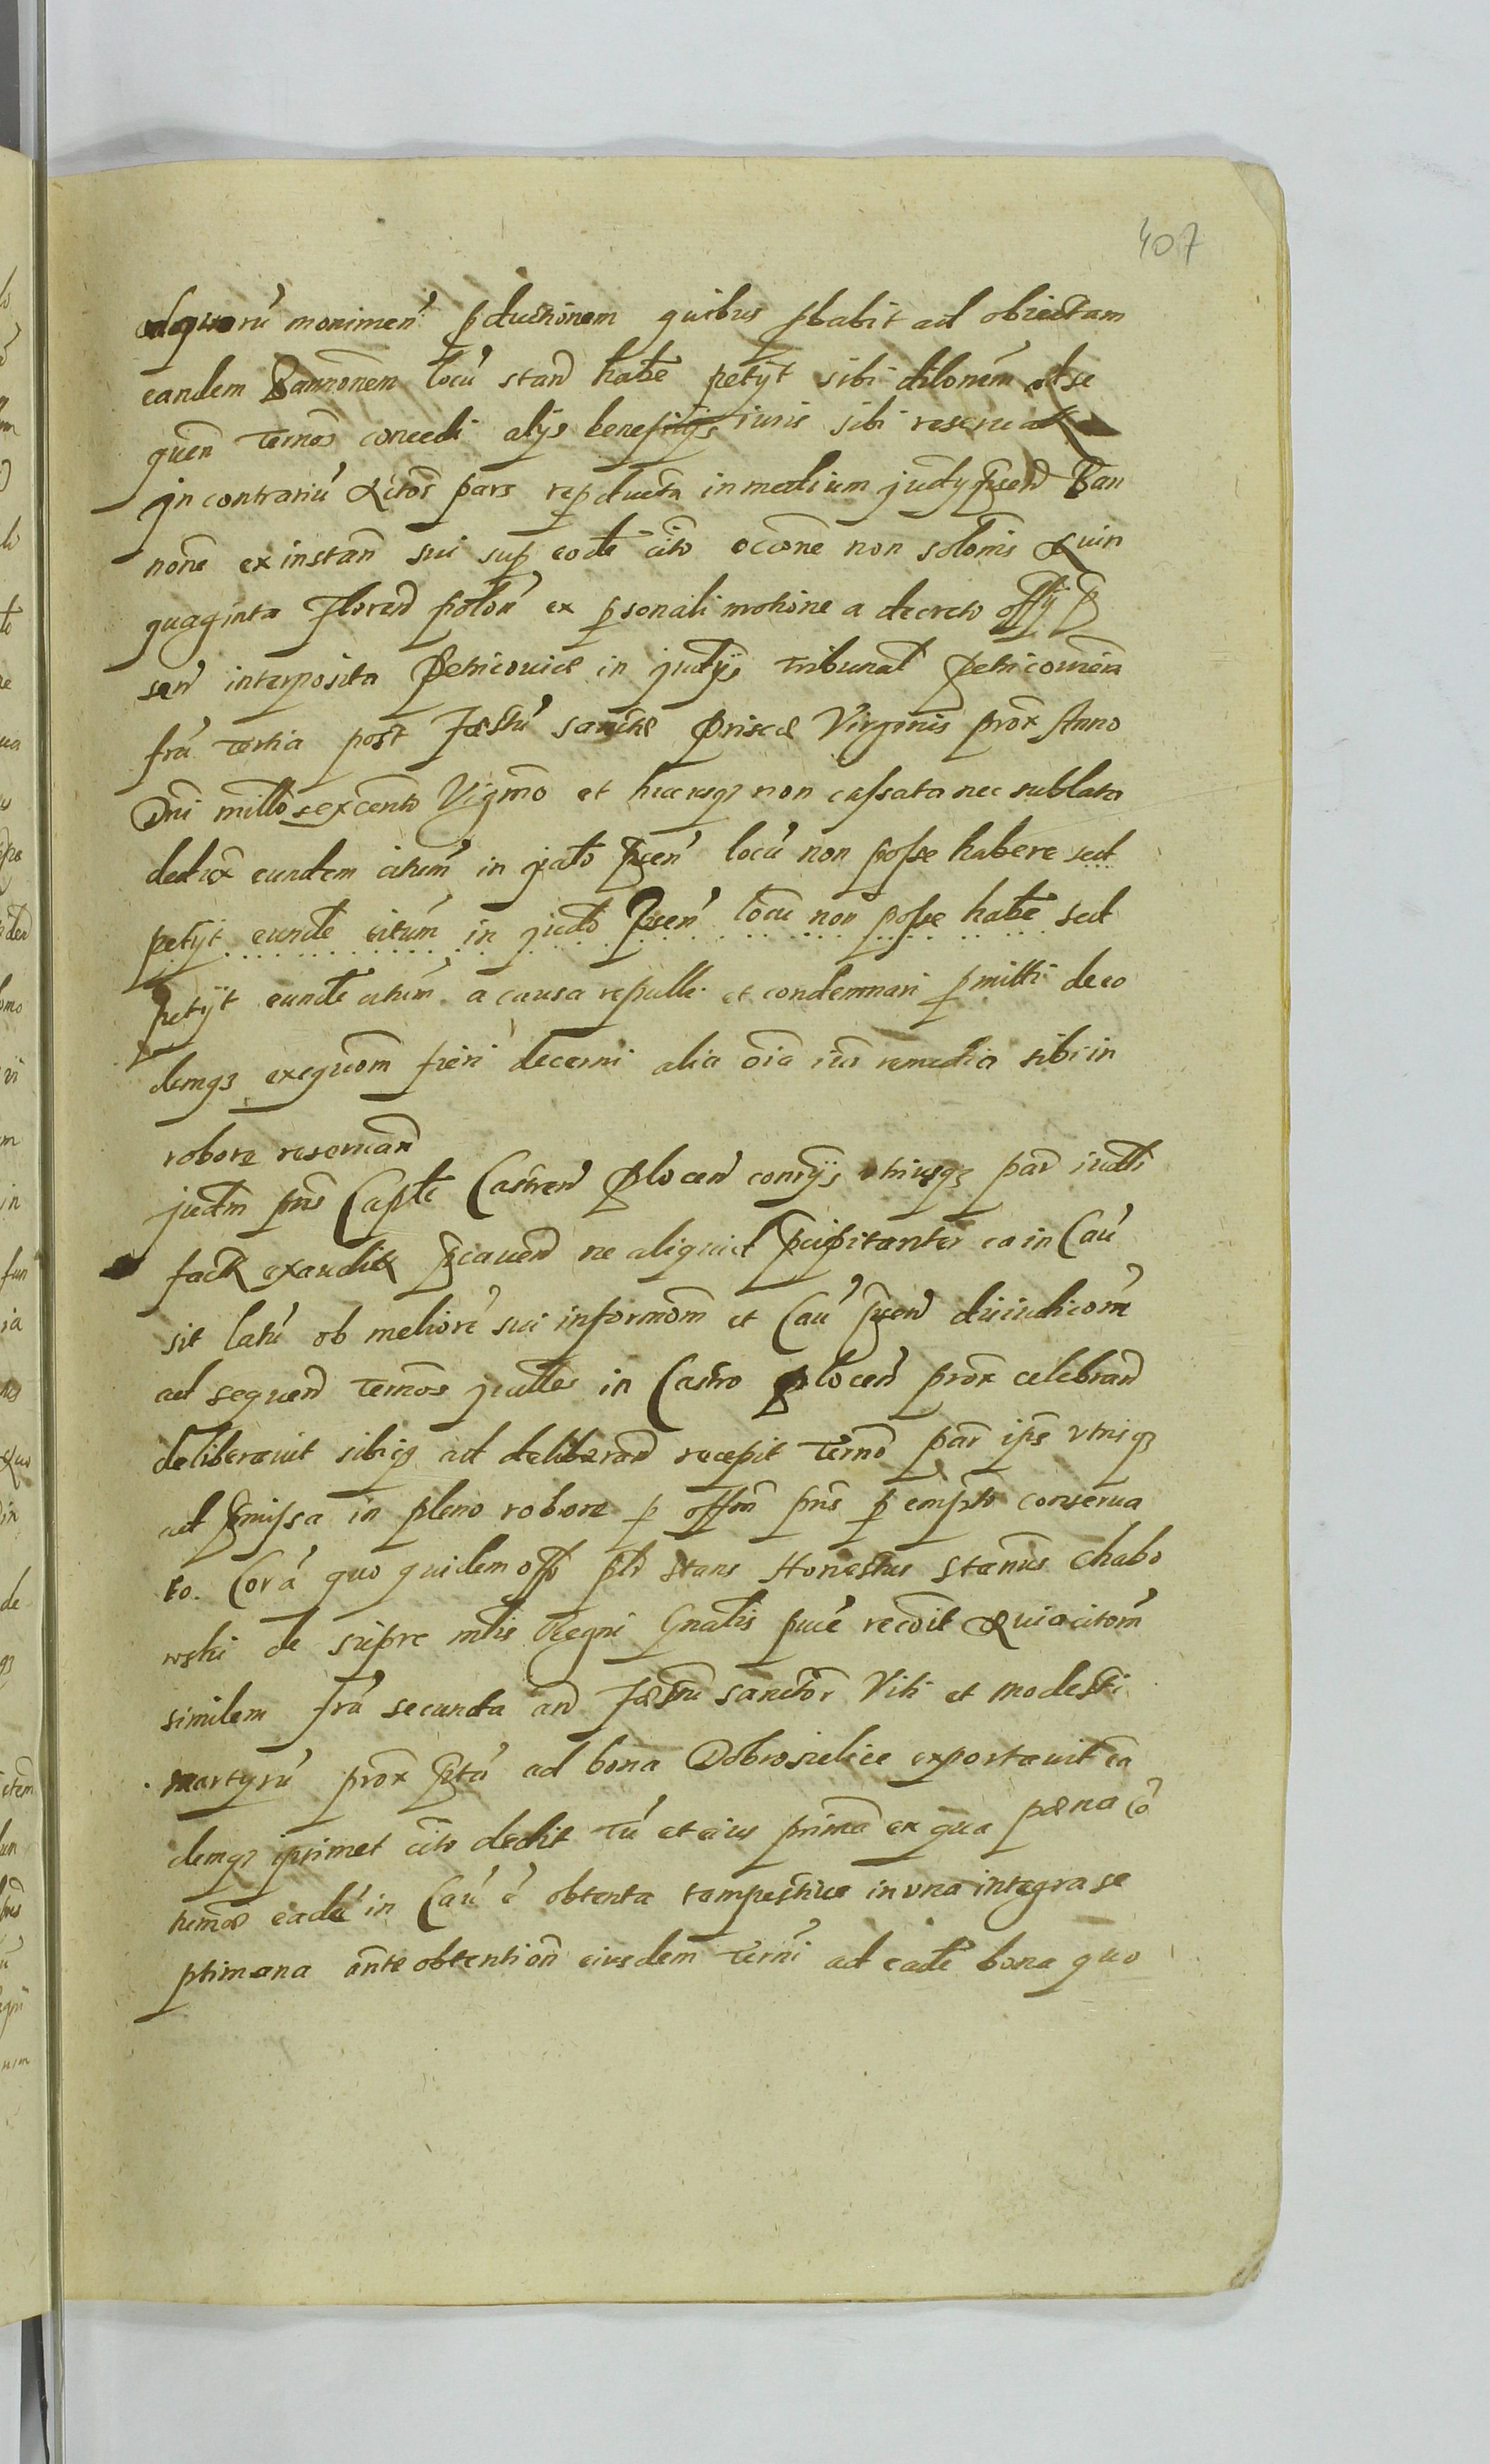 407
adquorū monimen̄ pductionem quibus pbabit ad obiectam
eandem Bannonem locū stand habe petyt sibi dilonem ad se
quen̄ Termos concedi alys beneficijs iuris sibi reserua
In contrariū Actor pars repducta in medium judy pn̄sen̄ Ban
none ex instan̄ sui sup eode cito occone non solonis Quin
quaginta Floren̄ polon̄ ex psonali motione a decreto offy p
sen̄ interposita Petricouiae in judys Tribunal Petricouien̄
fra tertia post Festū sanctae Priscae Virginis prox Anno
Dni millo sexcento Vigmo et hucusq3 non cassata nec sublata
dedux eundem citum in jdato pn̄sen̄ locū non posse habere sed
petyt eunde citum in judo pn̄sen̄ locū non posse habe sed
petyt eunde citum a causa repelli et condemnari pmitti de eo
demq3 exequom fieri decerni alia oia iuris remedia sibi in
robore reseruan̄
judm pns Caple Castren̄ Plocen̄ conys utriusq3 par judli
fact exaudit pcauen̄ ne aliquid pcipitanter ea in Cau
sit latū ob meliorē sui informom et Cau pn̄sen̄ diiudicom
ad sequen̄ Termos judles in Castro Plocen̄ prox celebran̄
deliberauit sibiq3 ad deliberan̄ recepit Termo par ips utrisq3
ad pmissa in pleno robore p offm pns p empto conserua
to. Corā quo quidem offo plr stans Honestus Stanus Chabo
wski de supre mtis Regni Gnalis puce recdit Quia citom
similem fra secunda an̄ Festū sanctor Viti et modesti
martyrū prox ptū ad bona Dobrosielice exportauit ea
demq3 ipsimet cito dedit Tū et eius prima ex qua paena co
tumae eadē in Cau ē obtenta tempestiue in una integra se
ptimana ante obtention̄ eiusdem Termi ad eade bona quo